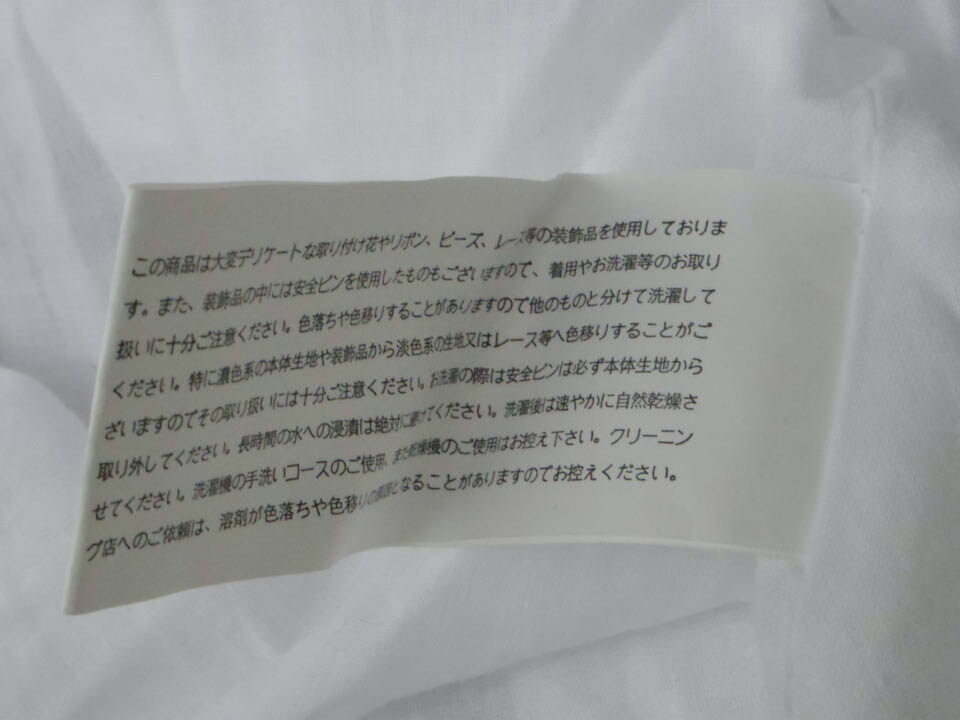 この商品は大変デリケートな取り付け花やリボン、ビーズ、レース等の装飾品を使用しておりま
す。また、装飾品の中には安全ピンを使用したものもございますので、着用やお洗濯等のお取り
扱いに十分ご注意ください。色落ちや色移りすることがありますので他のものと分けて洗濯して
ください。特に濃色系の本体生地や装飾品から淡色系の生地又はレース等へ色移りすることがご
ざいますのでその取り扱いには十分ご注意ください。お洗濯の際は安全ピンは必ず本体生地から
取り外してください。長時間の水への浸漬は絶対に避けてください。洗濯後は速やかに自然乾燥さ
せてください。洗濯機の手洗いコースのご使用、また乾燥機のご使用はお控え下さい。クリーニン
グ店へのご依頼は、溶剤が色落ちや色移りの原因となることがありますのでお控えください。